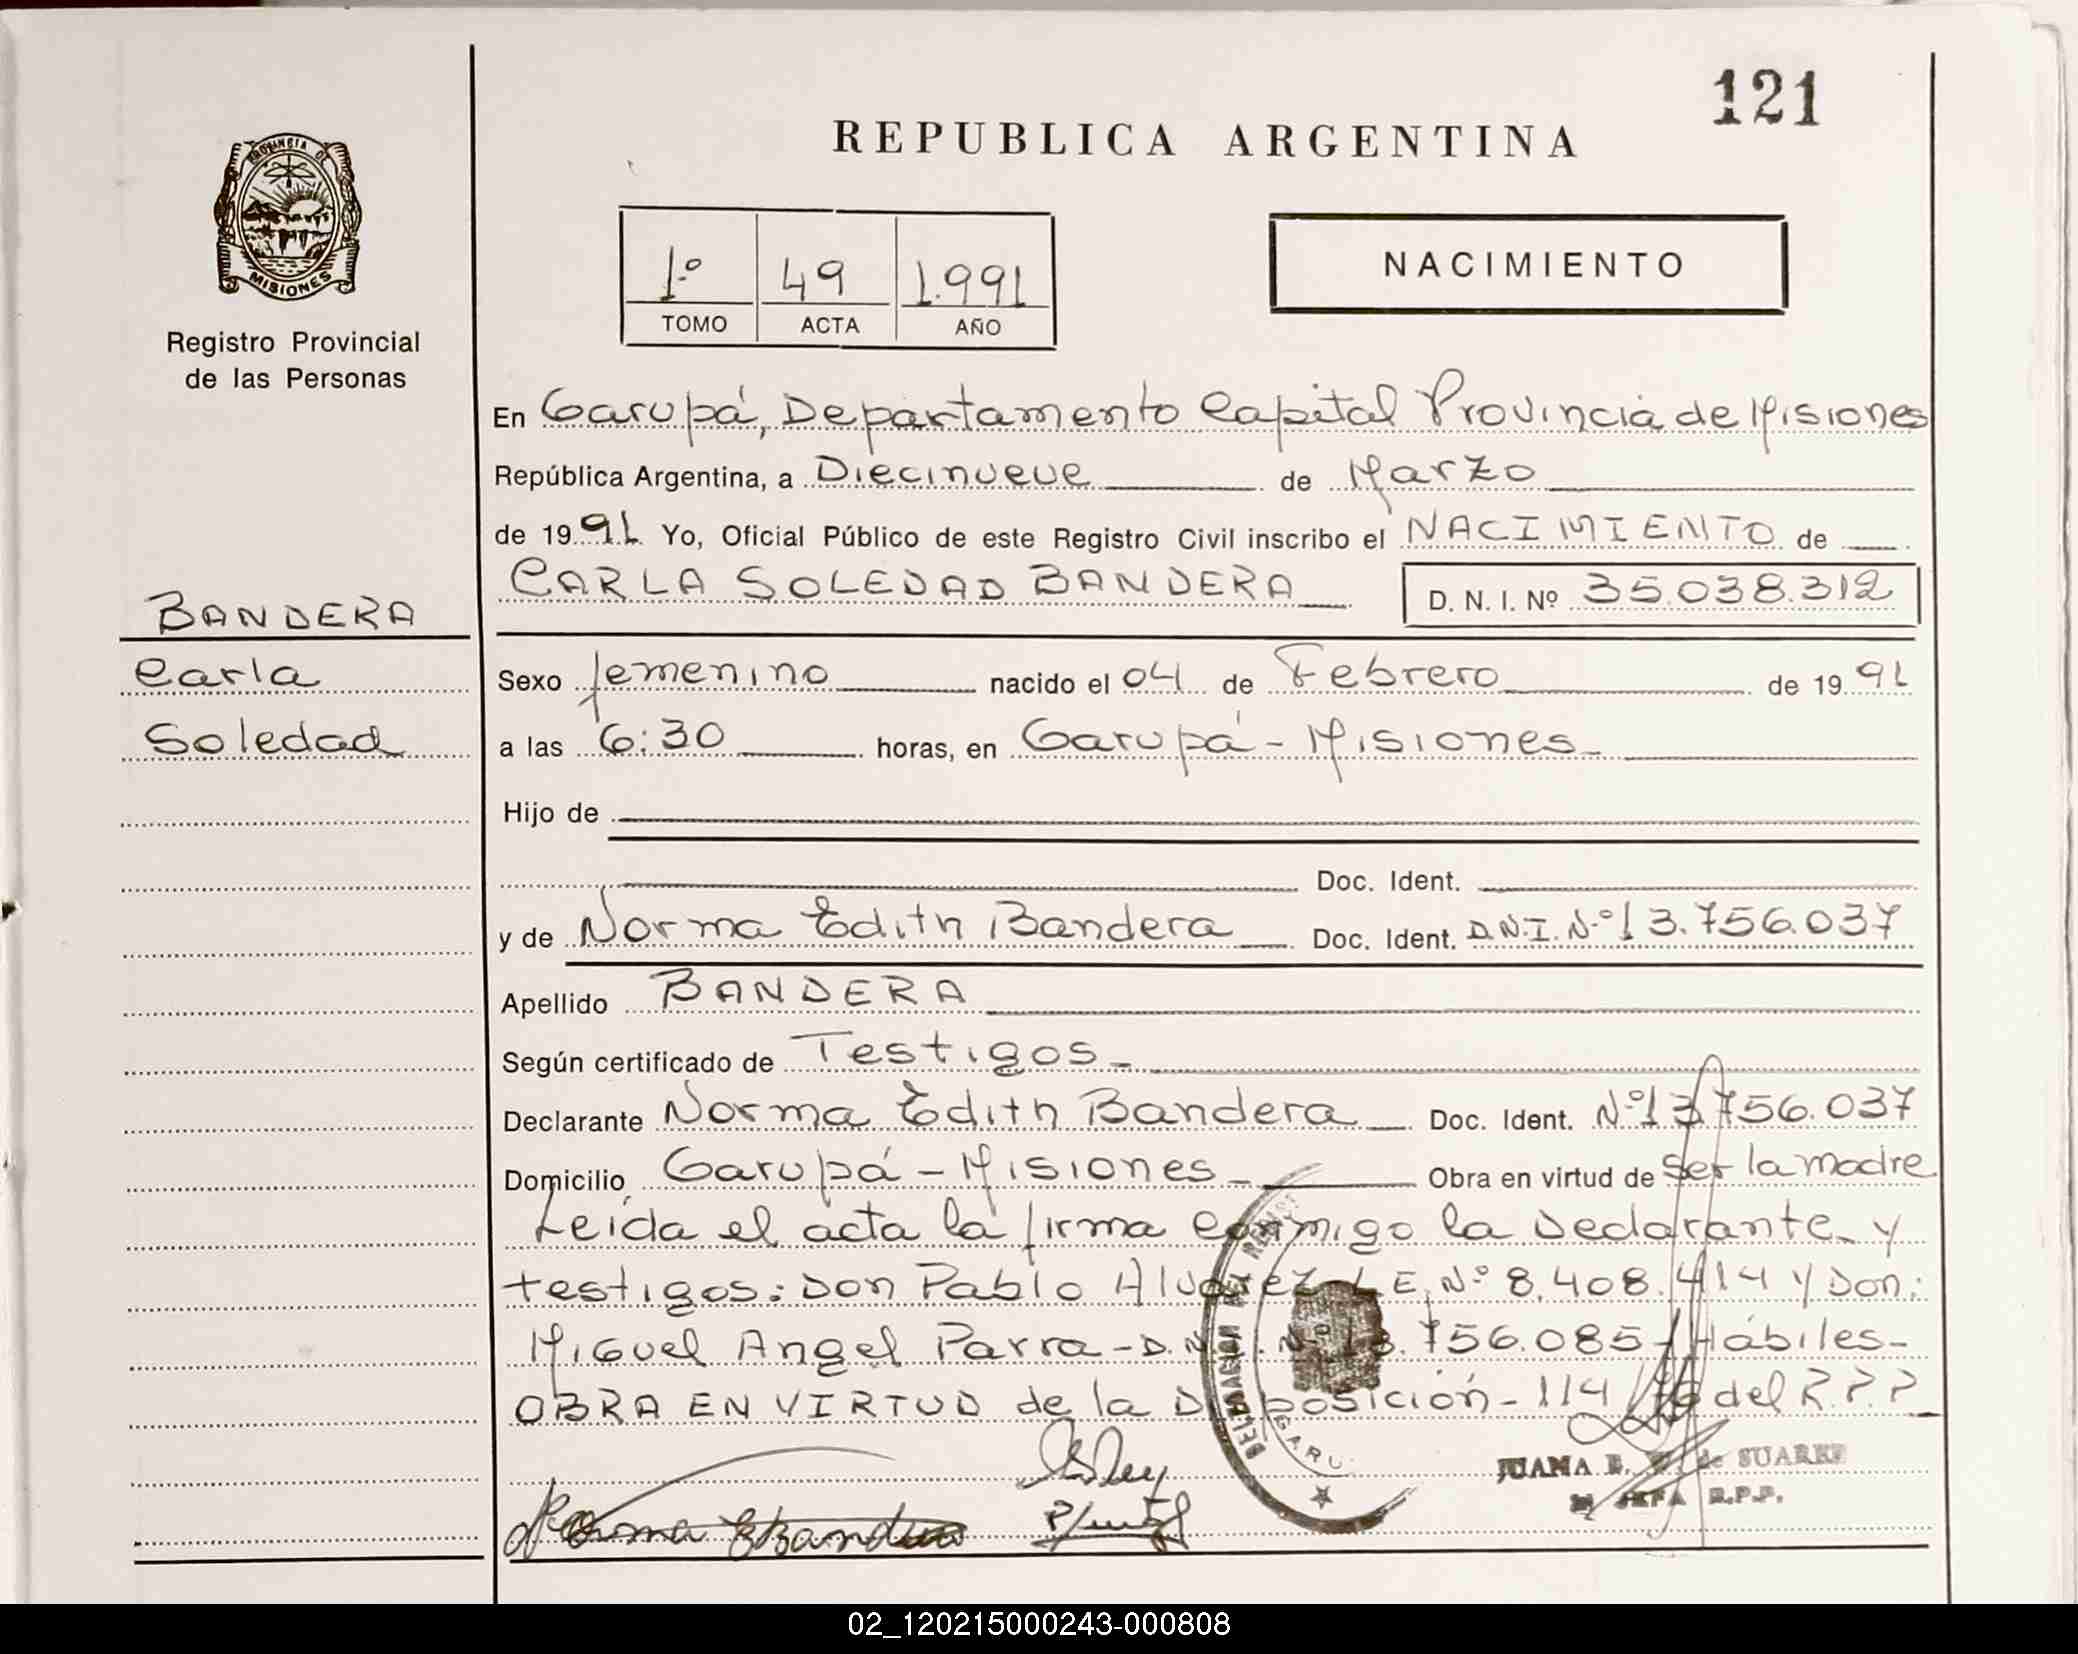 121
REPUBLICA ARGENTINA
PROVINCIA DE
MISIONES
Registro Provincial
de las Personas
1º 49 1.991
TOMO ACTA AÑO
NACIMIENTO
En Garupá, Departamento Capital Provincia de Misiones
República Argentina, a Diecinueve de Marzo
de 1991 Yo, Oficial Público de este Registro Civil inscribo el NACIMIENTO de
CARLA SOLEDAD BANDERA D. N. I. Nº 35.038.312
BANDERA
Carla
Soledad
Sexo femenino nacido el 04 de Febrero de 1991
a las 6:30 horas, en Garupá - Misiones
Hijo de
Doc. Ident.
y de Norma Edith Bandera Doc. Ident. D.N.I. Nº 13.756.037
Apellido BANDERA
Según certificado de Testigos
Declarante Norma Edith Bandera Doc. Ident. Nº 13.756.037
Domicilio Garupá - Misiones Obra en virtud de Ser la madre
Leída el acta la firma conmigo la Declarante y
testigos: Don Pablo Alvarez L.E. Nº 8.408.414 y Don:
Miguel Angel Parra - D.N.I. Nº 13.756.085 Hábiles-
OBRA EN VIRTUD de la Disposición - 114 del R.P.P
DELEGACION DEL REGIST
GARU
JUANA E. de SUAREZ
JEFA R.P.P.
Norma E Bandera
02_120215000243-000808